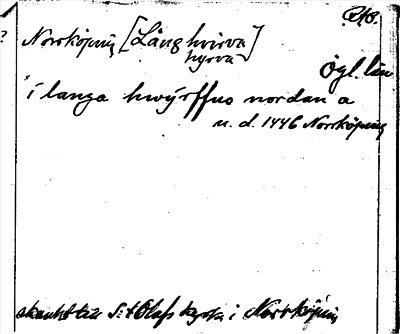 ?
Norrköping [Långhvirva]
hyrva
Ögl. län
i langa hwýrffuo nordan a
u. d. 1446 Norrköping
skänkt till S:t Olafs kyrka i Norrköping